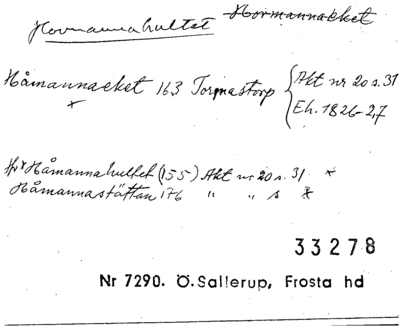 Hovmannahultet Hovmannaeket
Håmannaeket 163 Tormastorp { Akt nr 20 s. 31
× Eh. 1826-27
Håmannahultet (155) Akt nr 20 s. 31 ×
Håmannastättan 176 " " s
33278
Nr 7290. Ö.Sallerup, Frosta hd